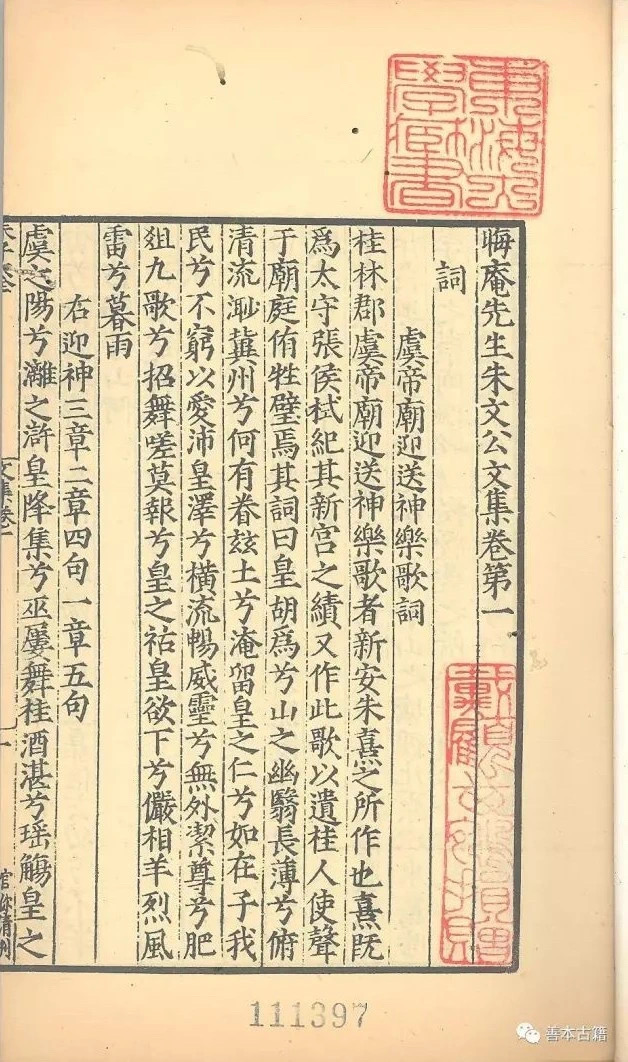 晦庵先生朱文公文集卷第一
詞
虞帝廟迎送神樂歌詞
桂林郡虞帝廟迎送神樂歌者新安朱熹之所作也熹旣
爲太守張侯栻紀其新宫之績又作此歌以遺桂人使聲
于廟庭侑牲璧焉其詞曰皇胡爲兮山之幽翳長薄兮俯
清流渺冀州兮何有眷兹土兮淹留皇之仁兮如在子我
民兮不窮以愛沛皇澤兮横流暢威靈兮無外潔尊兮肥
俎九歌兮招舞嗟莫報兮皇之祜皇欲下兮儼相羊烈風
雷兮暮雨
右迎神三章二章四句一章五句
虞之陽兮灕之滸皇降集兮巫屢舞桂酒湛兮瑶觴皇之
文集卷一
一
111397
善本古籍